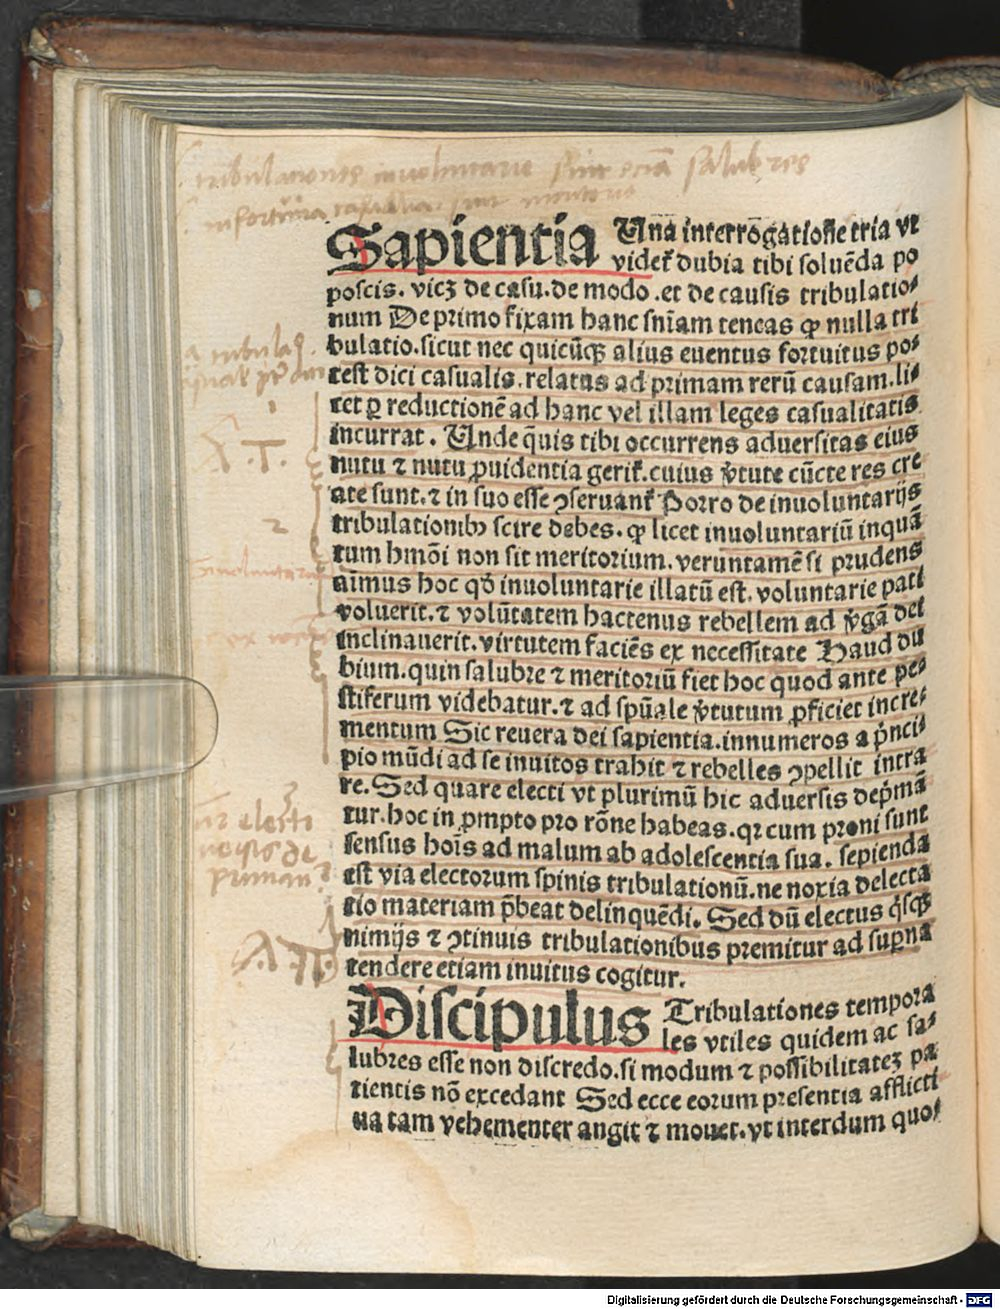 tribulationes involuntarie sint etiã salubres
Sapientia Una interrõgatiõne tria vt
videtꝛ dubia tibi soluẽda po
poscis. vicꝫ de casu.de modo .et de causis tribulatio⸗
num De primo fixam hanc sñiam teneas ꝙ nulla tri
bulatio.sicut nec quicũqꝫ alius euentus fortuitus po⸗
test dici casualis.relatus ad primam rerũ causam.li⸗
cet ꝑ reductionẽ ad hanc vel illam leges casualitatis
incurrat. Unde q̃uis tibi occurrens aduersitas eius
nutu ⁊ nutu ꝓuidentia geritꝛ.cuius ṽtute cũcte res cre
ate sunt.⁊ in suo esse ꝯseruantꝛ Porro de inuoluntarijs
tribulationibꝰ scire debes. ꝙ licet inuoluntariũ inquã
tum hmõi non sit meritorium. veruntamẽ si prudens
aĩmus hoc qđ inuoluntarie illatũ est. voluntarie pati
voluerit. ⁊ volũtatem hactenus rebellem ad ṽgã dei
inclinauerit. virtutem faciẽs ex necessitate Haud du
bium. quin salubre ⁊ meritoriũ fiet hoc quod ante pe⸗
stiferum videbatur. ⁊ ad spũale ṽtutum ꝓficiet incre⸗
mentum Sic reuera dei sapientia.innumeros a p̃nci
pio mũdi ad se inuitos trahit ⁊ rebelles ꝯpellit intra
re. Sed quare electi vt plurimũ hic aduersis dep̃mã
tur.hoc in ꝓmpto pro rõne habeas. qꝛ cum proni sunt
sensus hoĩs ad malum ab adolescentia sua. sepienda
est via electorum spinis tribulationũ. ne noxia delecta
tio materiam p̃beat delinquẽdi. Sed dũ electus q̃sqꝫ
nimijs ⁊ ꝯtinuis tribulationibus premitur ad suꝑna
tendere etiam inuitus cogitur.
Discipulus Tribulationes tempora
les vtiles quidem ac sa⸗
lubres esse non discredo. si modum ⁊ possibilitateꝫ pa
tientis nõ excedant Sed ecce eorum presentia afflicti
ua tam vehementer angit ⁊ mouet. vt interdum quo⸗
Digitalisierung gefördert durch die Deutsche Forschungsgemeinschaft - DFG